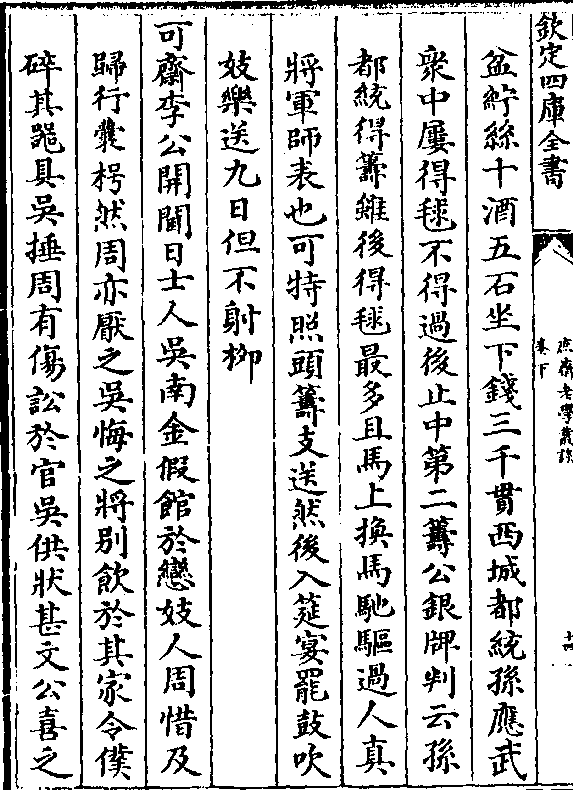 欽定四庫全書
庶齋老學叢談
卷下
十四
盆紵絲十酒五石坐下錢三千貫西城都統孫應武
衆中屢得毬不得過後止中第二籌公銀牌判云孫
都統得籌雖後得毬最多且馬上換馬馳驅過人真
將軍師表也可特照頭籌支送然後入筵宴罷鼓吹
妓樂送九日但不射栁
可齋李公開閫日士人吳南金假館於戀妓人周惜及
歸行囊枵然周亦厭之吳悔之將别飲於其家令僕
碎其噐具吳捶周有傷訟於官吳供狀甚文公喜之